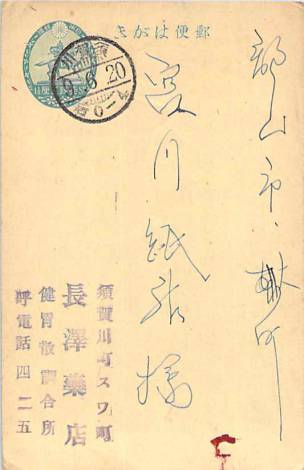 郵便はがき
郡山市
宮川紙店様
須賀川町スワ町
長澤薬店
健胃散調合所
呼電話四二五
9.6.20